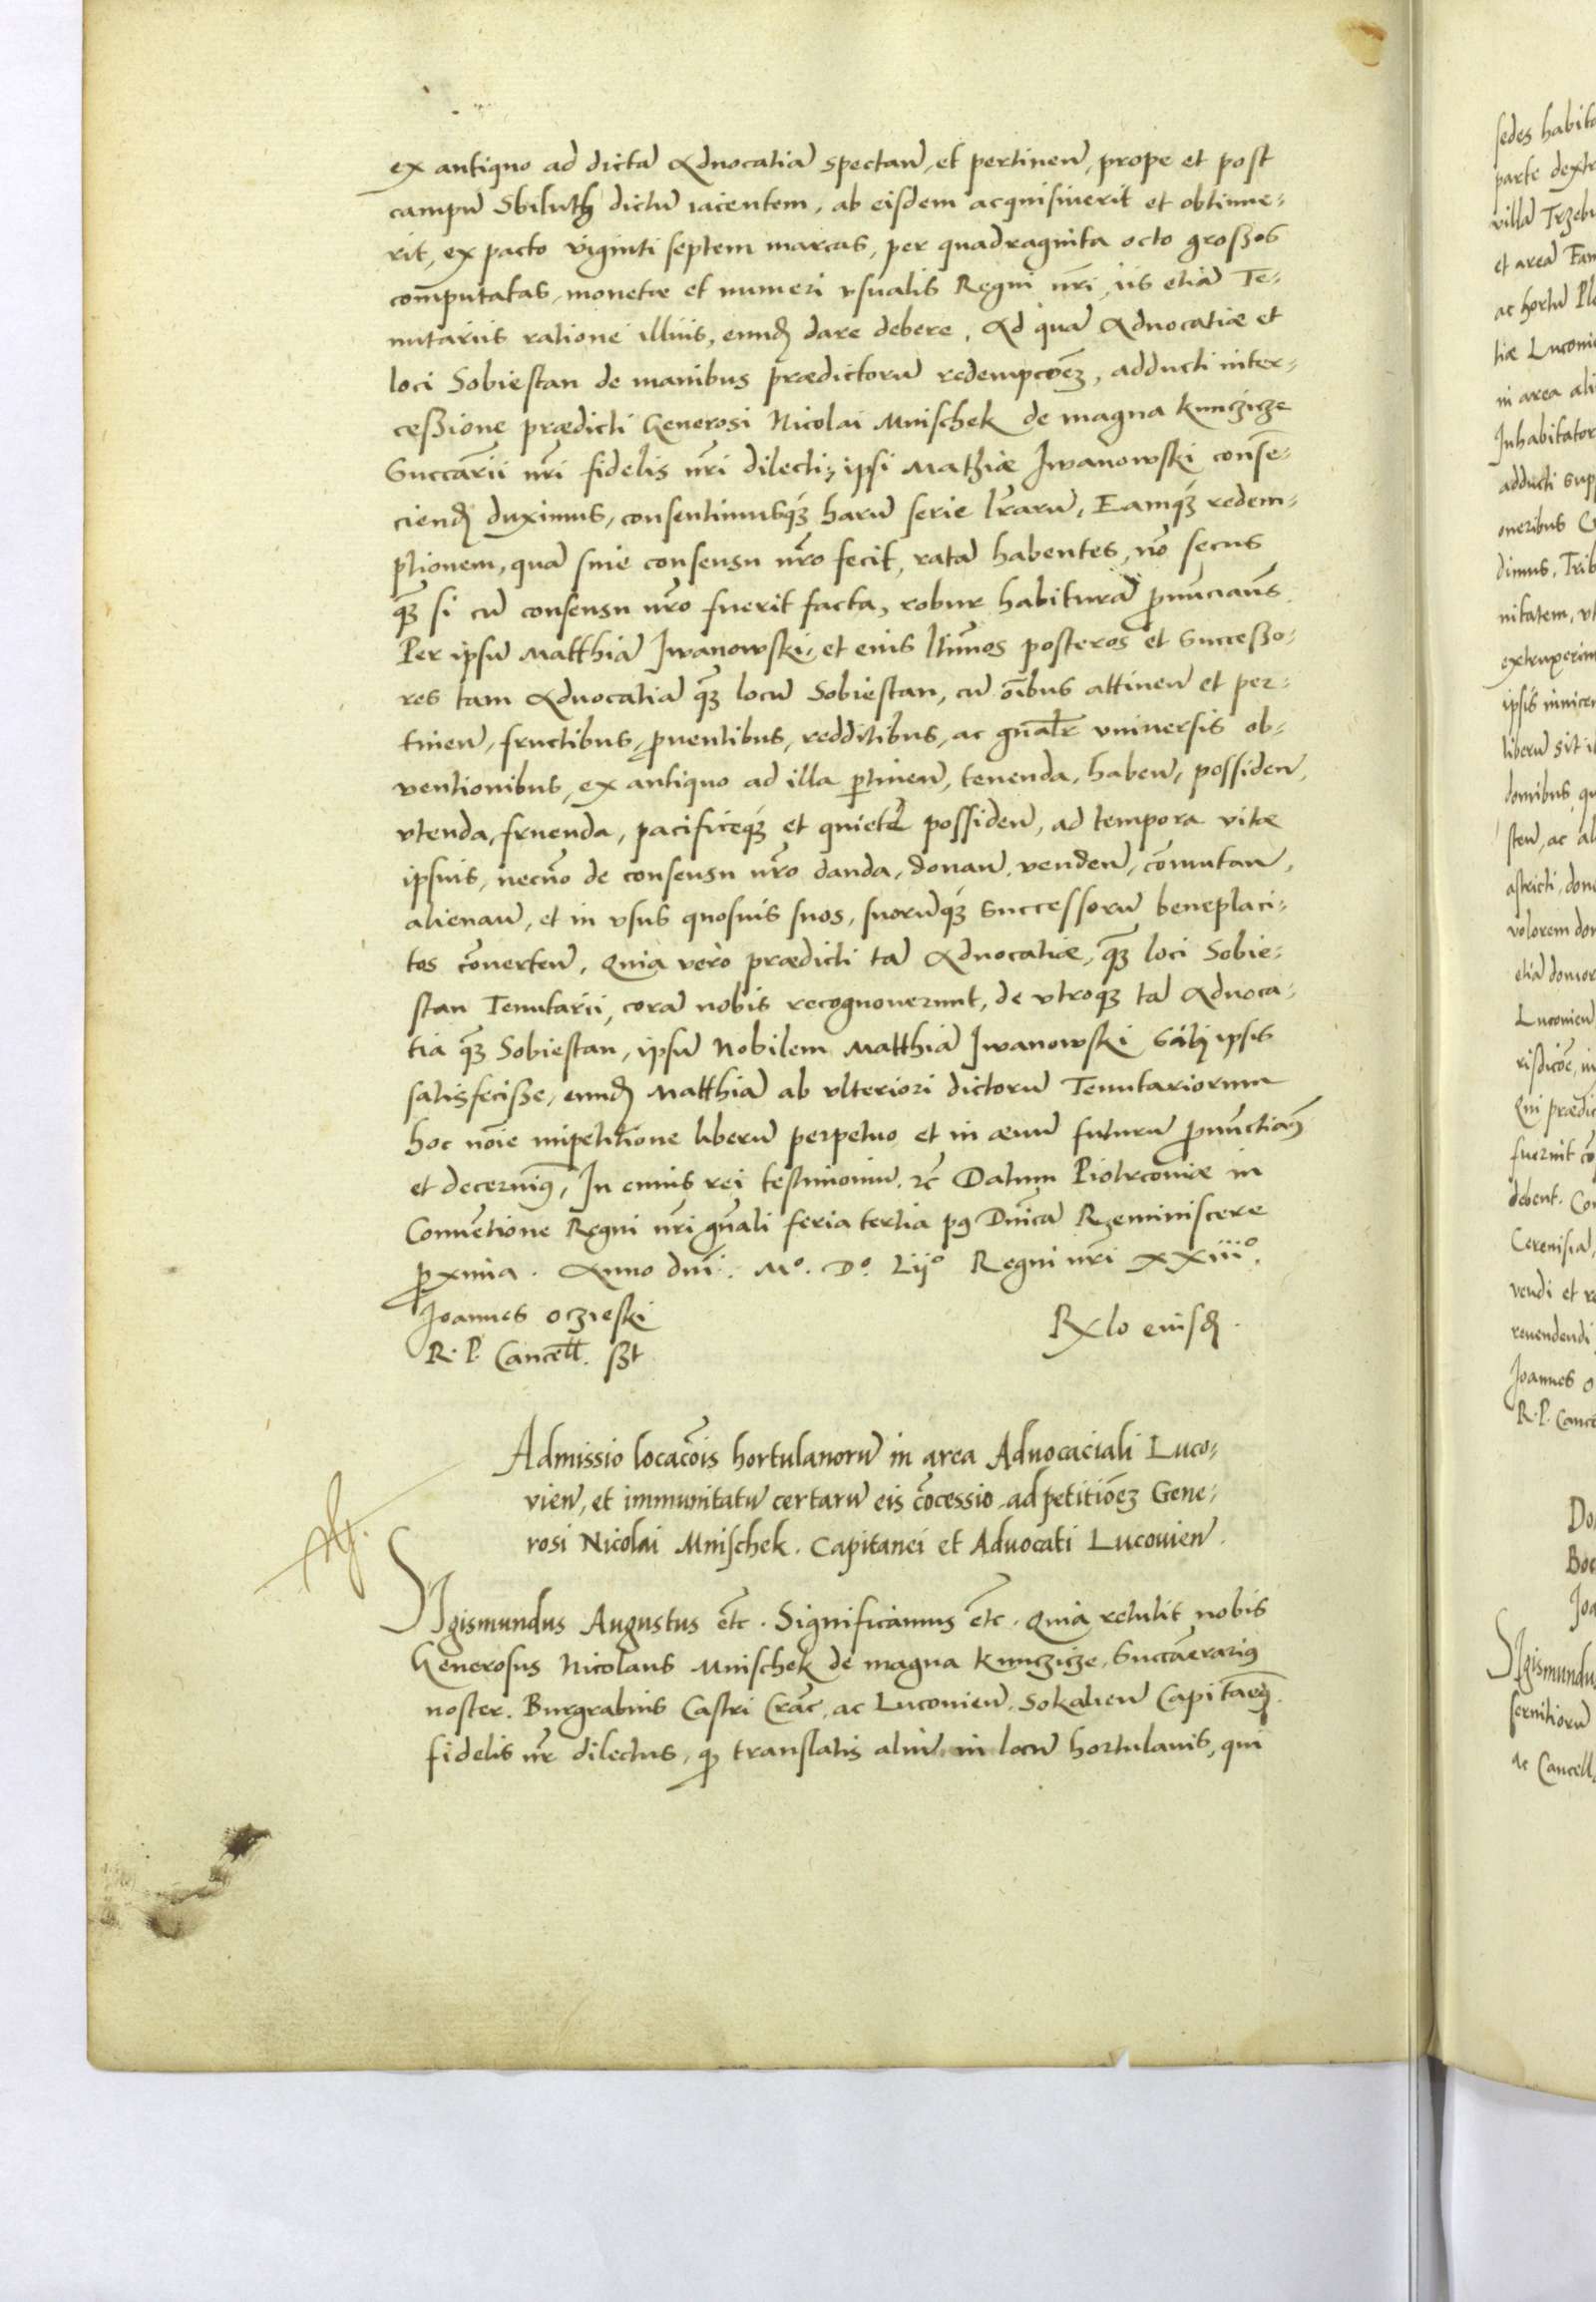 ex antiquo ad dictã Aduocatiã spectan̄, et pertinen̄, prope et post
campũ Sbiluth dictũ iacentem, ab eisdem acquisiuerit et obtinue-
rit, ex pacto viginti septem marcas, per quadraginta octo großos
computatas, monetæ et numeri vsualis Regni nr̃i, iis etiã Te-
nutariis ratione illius, eund dare debere. Ad quã Aduocatiæ et
loci Sobiestan de manibus prædictorũ redempcoẽz, adducti inter-
ceßione prædicti Generosi Nicolai Mnischek de magna Kunczicze
Succarĩi nr̃i fidelis nr̃i dilecti, ipsi Mathiæ Iwanowski consẽ-
ciend duximus, consentimusqз harũ serie lr̃arũ, Eamqз redem-
ptionem, quã sine consensu nr̃o fecit, ratã habentes, nõ secus
qз si cũ consensu nr̃o fuerit facta, robur habiturã pronũciañs
Per ipsũ Matthiã Iwanowski, et eius ltimos posteros et Succeßo-
res tam Aduocatiã qз locũ Sobiestan, cũ oĩbus attinen̄ et per-
tinen̄, fructibus, prouentibus, redditibus, ac gñalr̃ vniuersis ob-
uentionibus, ex antiquo ad illa ptinen̄, tenenda, haben̄, possiden̄,
vtenda, fruenda, pacificeqз et quiete possiden̄, ad tempora vitæ
ipsius, necnõ de consensu nr̃o danda, donan̄, venden̄, cõmutan̄,
alienan̄, et in vsus quosuis suos, suorũqз successorũ beneplaci-
tos cõuerten̄, Quia verò prædicti tã Aduocatiæ, qз loci Sobie-
stan Tenutarii, corã nobis recognouerunt, de vtroqз tã Aduoca-
tia qз Sobiestan, ipsũ Nobilem Matthiã Iwanowski ipsis
satisfeciße, eund Matthiã ab vlteriori dictorũ Tenutariorum
hoc noĩe impetitione liberũ perpetuo et in æuũ futurũ pronũctiam9
et decernim9, In cuius rei testimoniũ. rc̃ Datum Piotrcouiæ in
Conuẽtione Regni nr̃i gñali feria tertia p9 Dnĩcã Rzeminiscere
proxima. Anno dnĩ. Mº. Dº. Lijº Regni nr̃i XXiiiº.
Joannes Oczieski
R. P. Cancell. sßt
Rxlo eiusd.
Admissio locacõis hortulanorũ in area Aduocaciali Luco-
vien̄, et immunitatũ certarũ eis cõcessio ad petitiõez Gene-
rosi Nicolai Mnischek. Capitanei et Aduocati Lucouien̄.
SIgismundus Augustus etc̃. Significamus etc̃. Quia retulit nobis
Generosus Nicolaus Mnischek de magna Kunczicze, Succãerari9
noster. Burgrabius Castri Crac̃, ac Lucouien̄, Sokalien̄ Capitae9
fidelis nr̃ dilectus, q translatis aliũ in locũ hortulanis, qui
sedes habita
parte dextr
villã Trzebi
et areã Fam
ac hortũ Ple
tiæ Lucouie
in area ali
Inhabitator
adducti sup
oneribus C
dimus, Trib
nitatem, vt
extruxerin
ipsis inuicen
liberũ sit i
domibus, qu
sten̄, ac al
astricti, don
volorem don
etiã domor
Lucouien̄
risdicõe, in
Qui prædic
fuerint cõ
debent. Con
Cereuisiã,
vendi et re
reuendendi
Joannes O
R. P. Cance
Do
Boc
Joa
SIgismundu
seruitiorũ
ac Cancell